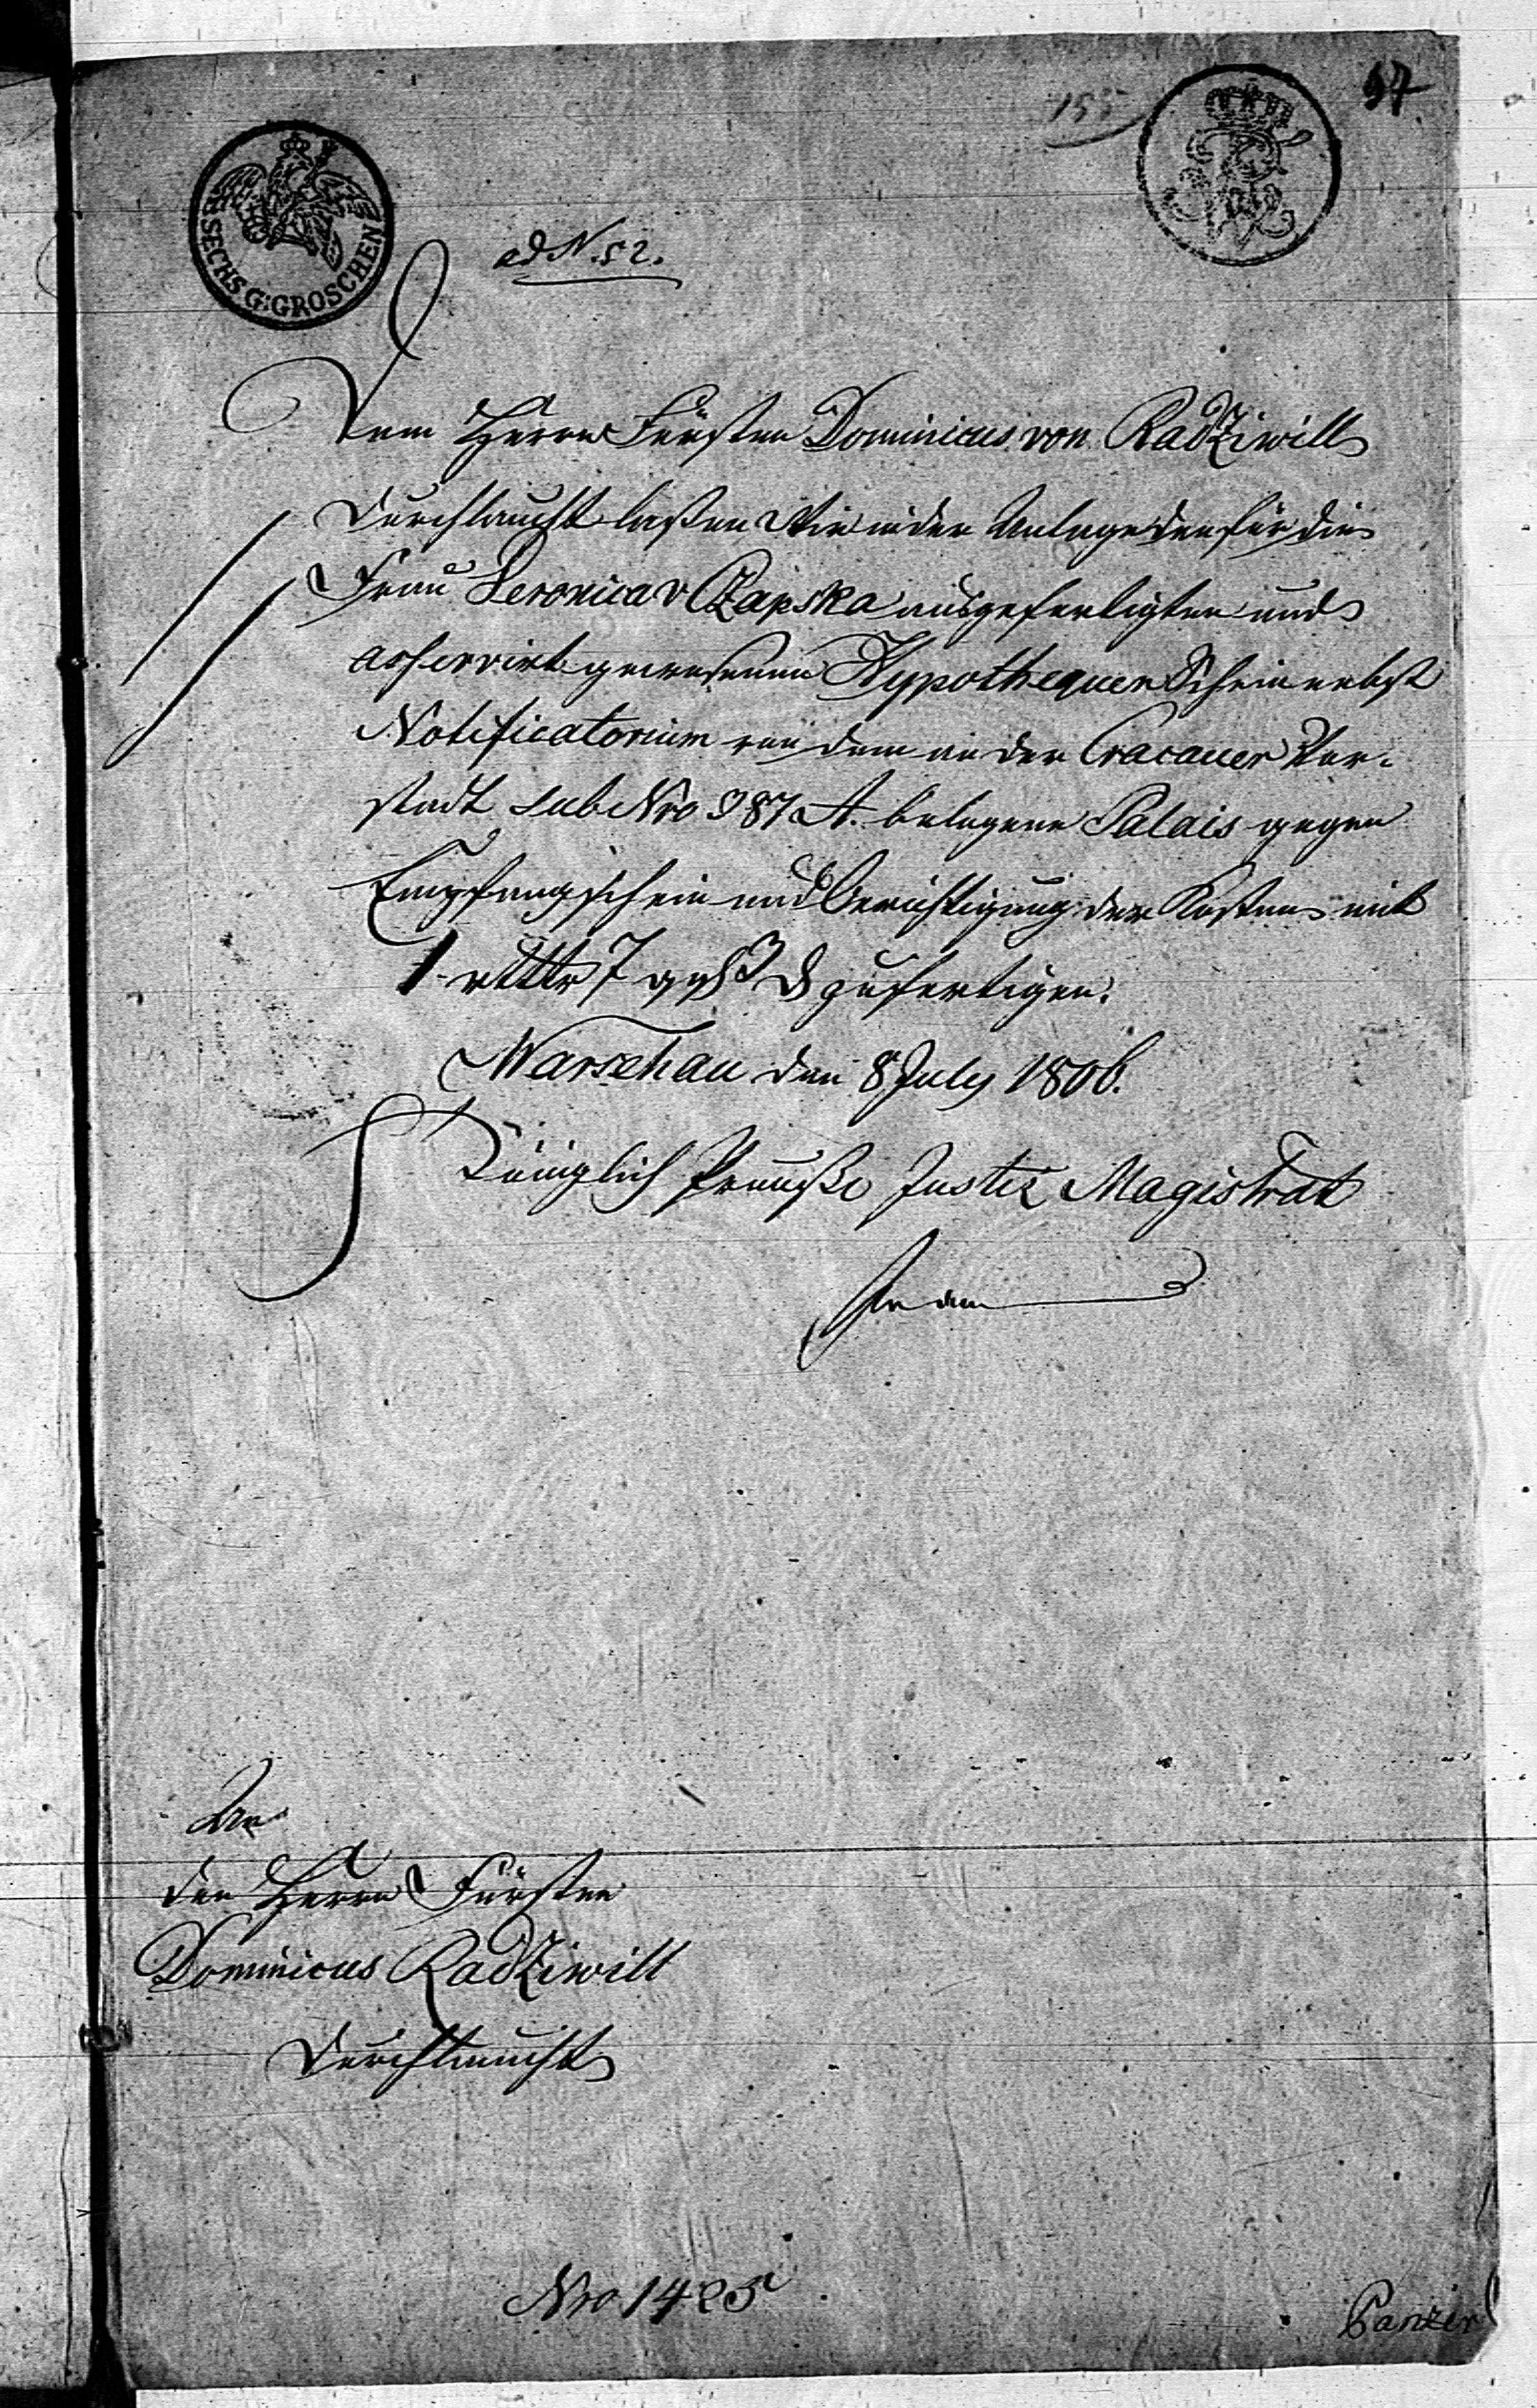 155
97
SECHS G:GROSCHEN
ad N. 52.
Dem Herrn Fürsten Dominicus von Radziwill
Durchlaucht laßen Wir in der Anlage den für die
Frau Veronica v Czapska ausgefertigten und
asservirt gewesenen Hypothequen Schein nebst
Notificatorium von dem in der Cracauer Vor-
stadt sub Nro 387 A. belegene Palais gegen
Empfangschein und Berichtigung der Kosten mit
1 rtlr 7 ggl 3 d zufertigen.
Warschau den 8 July 1806.
Königlich Preuuße Justiz Magistrat
An
den Herrn Fürsten
Dominicus Radziwill
Durchlaucht
Nro 1425
Panzer